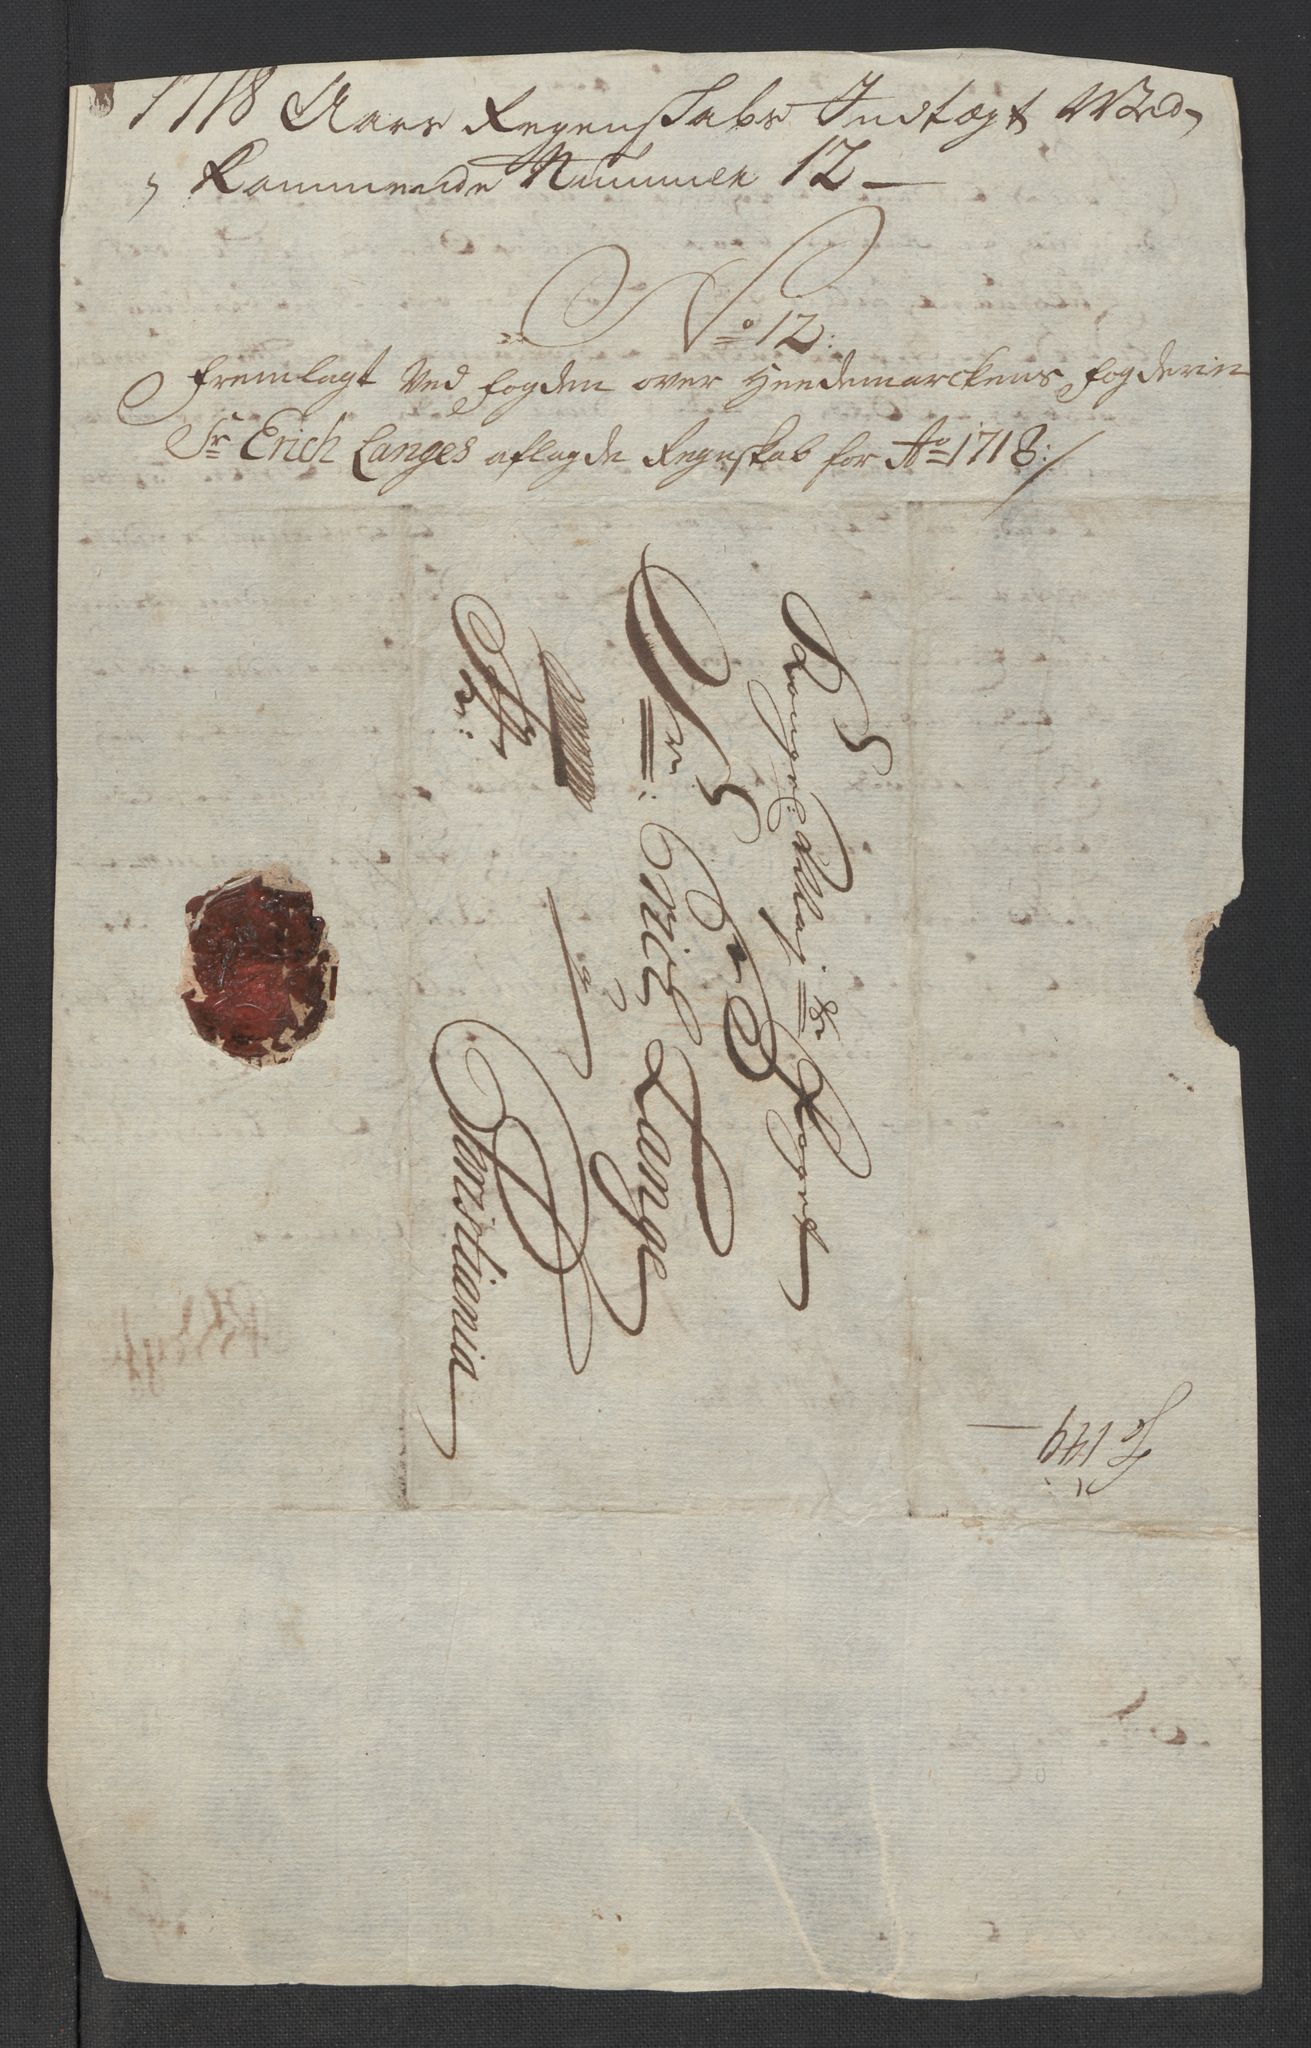 1718 Aars Regenskabs Indtægt Wed-
kommende Nummer 12 —
No 12:
Fremlagt Ved fogden over Heedemarckens fogderie
Sr Erich Langes aflagde Regnskab for Ao 1718:/
Kongel: Maj:
Foget
Sr: Erich Lange
a
Christiania